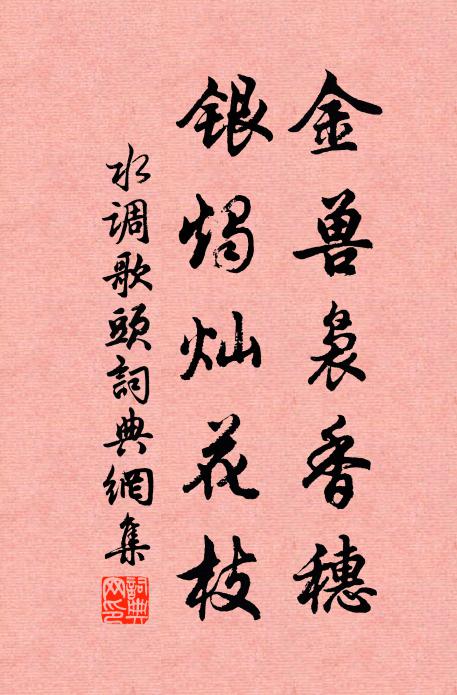 金兽袅香穗
银烛灿花枝
水调歌頭詞典網集
詞典網印